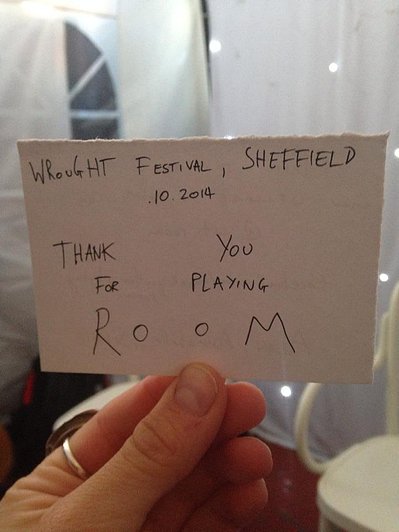 WROUGHT FESTIVAL, SHEFFIELD
.10.2014
THANK YOU
FOR PLAYING
ROOM